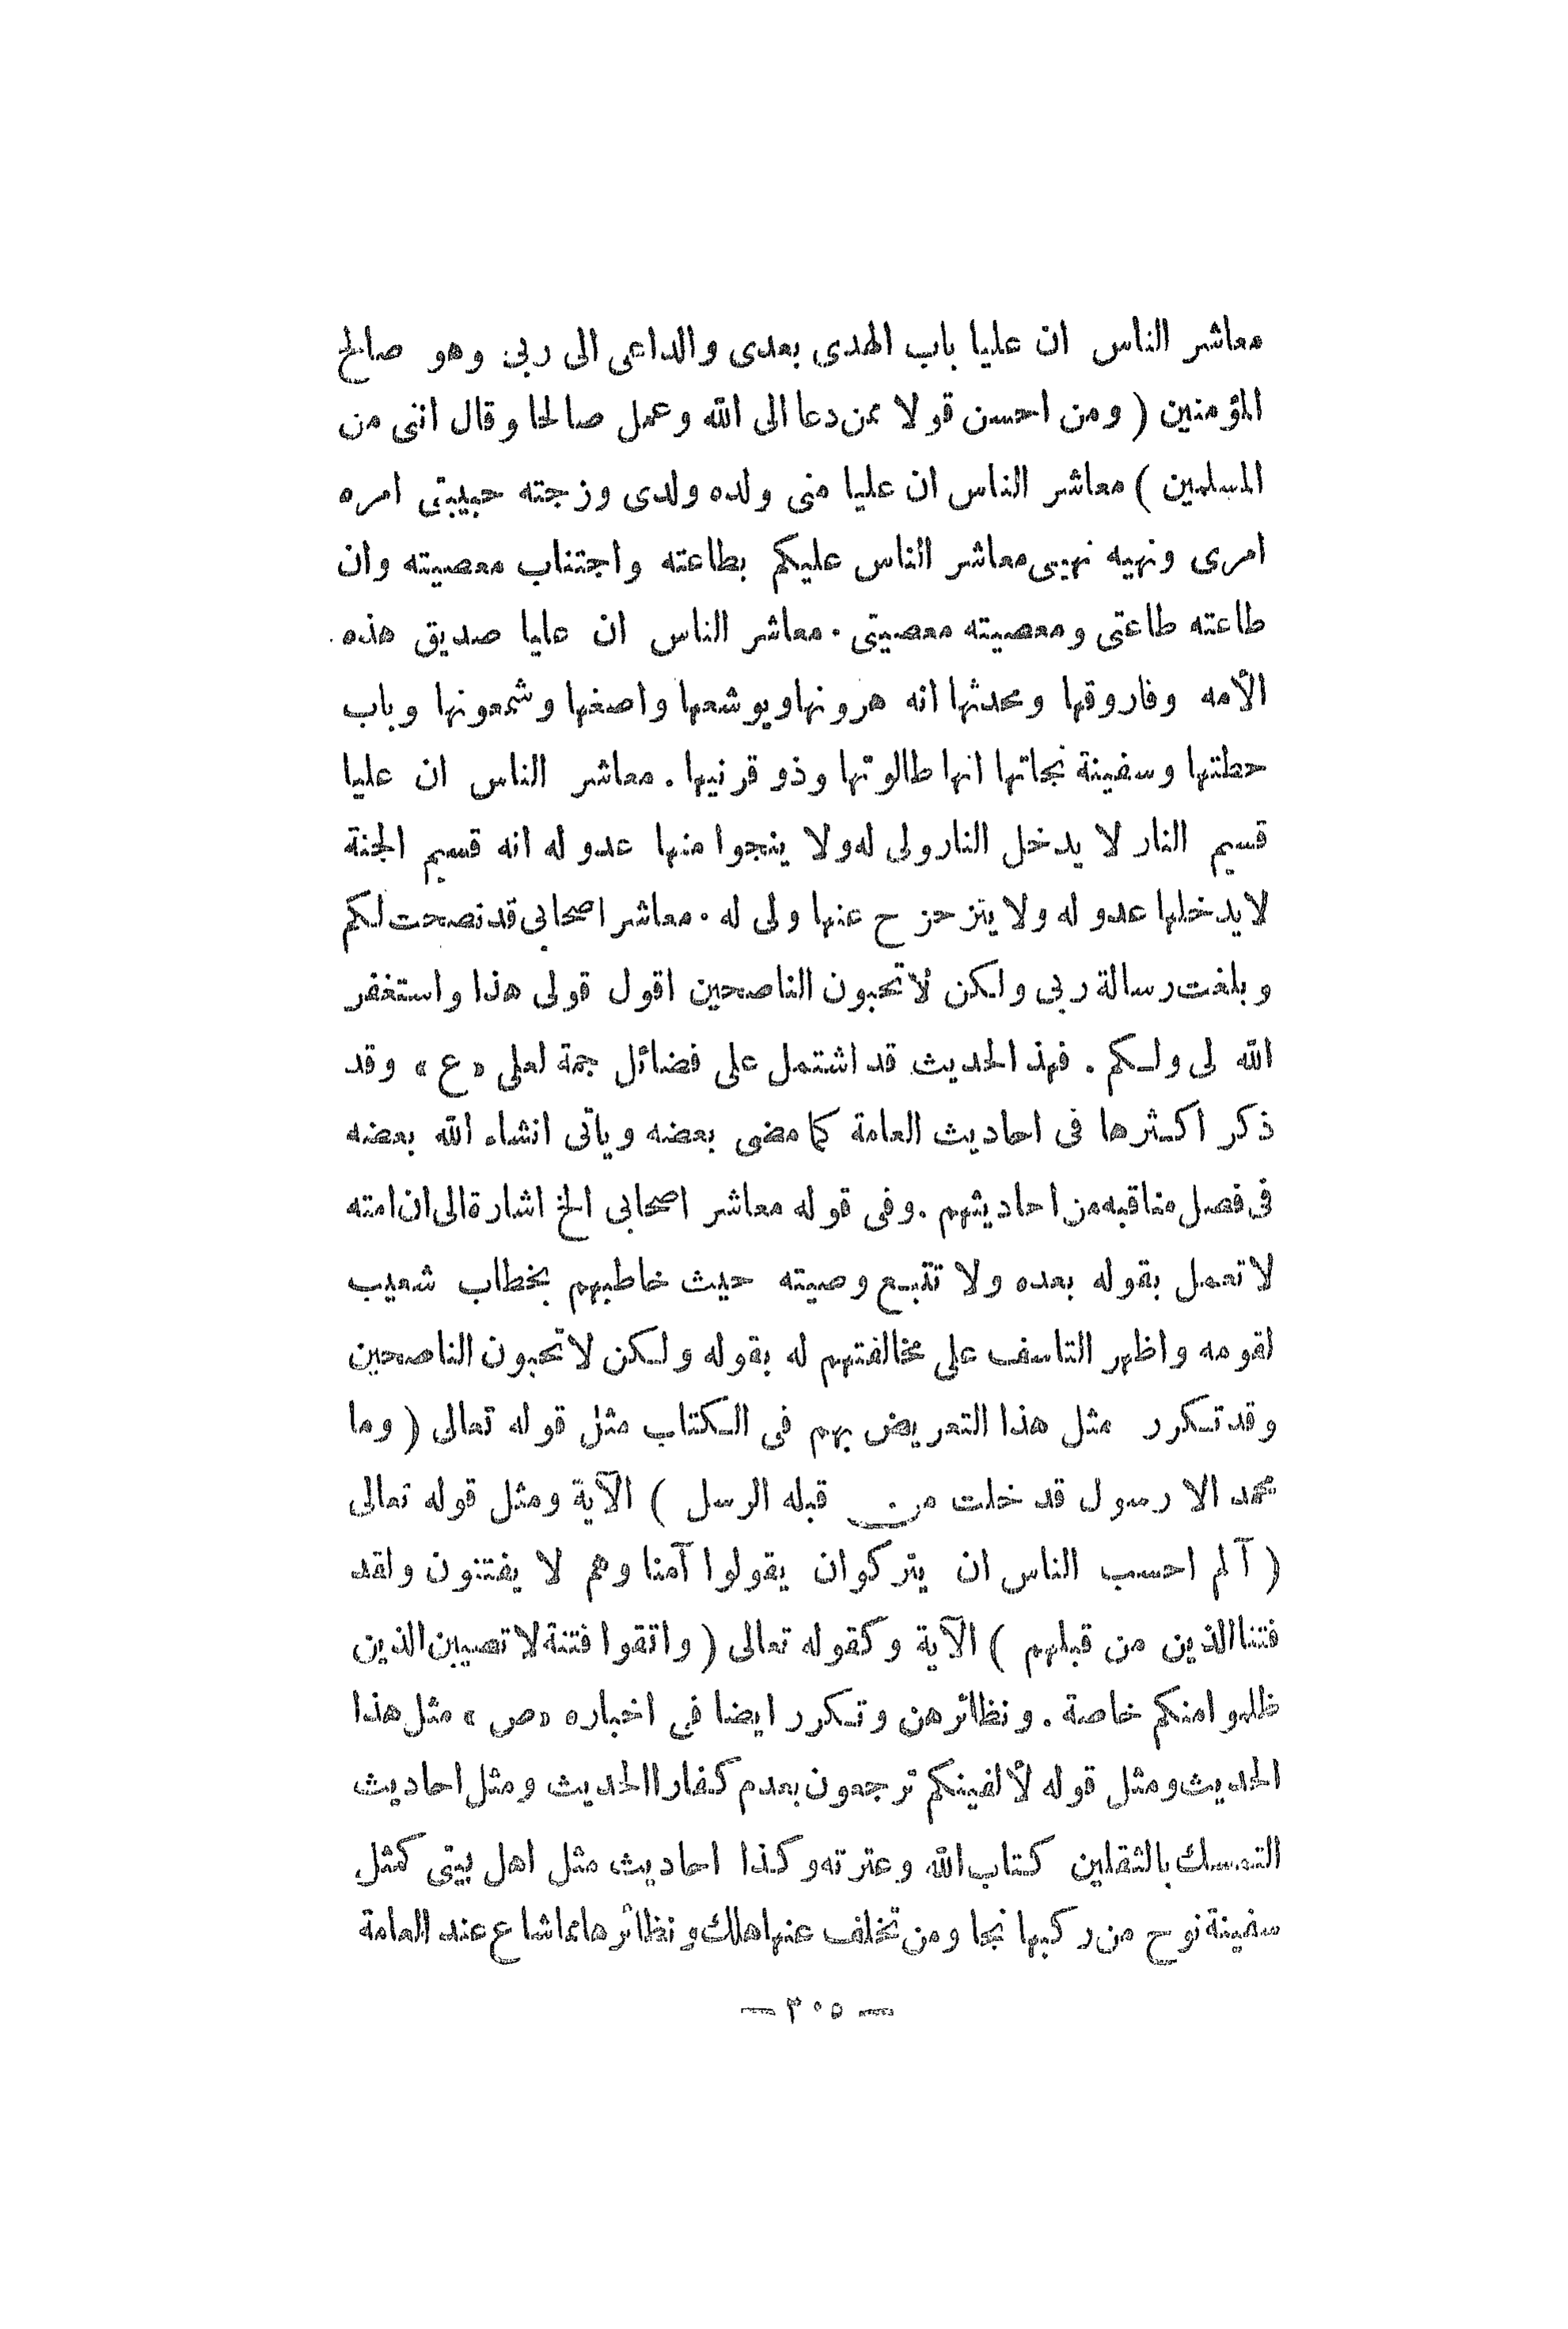 معاشر الناس ان عليا باب الهدى بعدى والداعى الى ربى وهو صالح
المؤمنين ( ومن احسن قولا ممن دعا الى الله وعمل صالحا وقال اننى من
المسلمين ) معاشر الناس ان عليا منى ولده ولدى وزجته حبيبتى امره
امرى ونهيه نهيى معاشر الناس عليكم بطاعته واجتناب معصيته وان
طاعته طاعتى ومعصيته معصيتى . معاشر الناس ان عليا صديق هذه
الأمه وفاروقها ومحدثها انه هرونها ويوشعها واصفها وشمعونها وباب
حطتها وسفينة نجاتها انها طالوتها وذو قرنيها . معاشر الناس ان عليا
قسيم النار لا يدخل النار ولى له ولا ينجوا منها عدو له انه قسيم الجنة
لا يدخلها عدو له ولا يتزحزح عنها ولى له . معاشر اصحابى قد نصحت لكم
وبلغت رسالة ربى ولكن لا تحبون الناصحين اقول قولى هذا واستغفر
الله لى ولكم . فهذ الحديث قد اشتمل على فضائل جمة لعلى «ع» وقد
ذكر اكثرها فى احاديث العامة كما مضى بعضه وياتى انشاء الله بعضه
فى فصل مناقبه من احاديثهم . وفى قوله معاشر اصحابى الخ اشارة الى ان امته
لا تعمل بقوله بعده ولا تتبع وصيته حيث خاطبهم بخطاب شعيب
لقومه واظهر التاسف على مخالفتهم له بقوله ولكن لا تحبون الناصحين
وقد تكرر مثل هذا التعريض بهم فى الكتاب مثل قوله تعالى ( وما
محمد الا رسول قد خلت من قبله الرسل ) الآية ومثل قوله تعالى
( آلم احسب الناس ان يتركوا ان يقولوا آمنا وهم لا يفتنون ولقد
فتنا الذين من قبلهم ) الآية وكقوله تعالى ( واتقوا فتنة لا تصيبن الذين
ظلموا منكم خاصة . ونظائرهن وتكرر ايضا فى اخباره «ص» مثل هذا
الحديث ومثل قوله لألفينكم ترجعون بعدم كفارا الحديث ومثل احاديث
التمسك بالثقلين كتاب الله وعترته وكذا احاديث مثل اهل بيتى كمثل
سفينة نوح من ركبها نجا ومن تخلف عنها هلك ونظائرها مما شاع عند العامة
— ٣٠٥ —